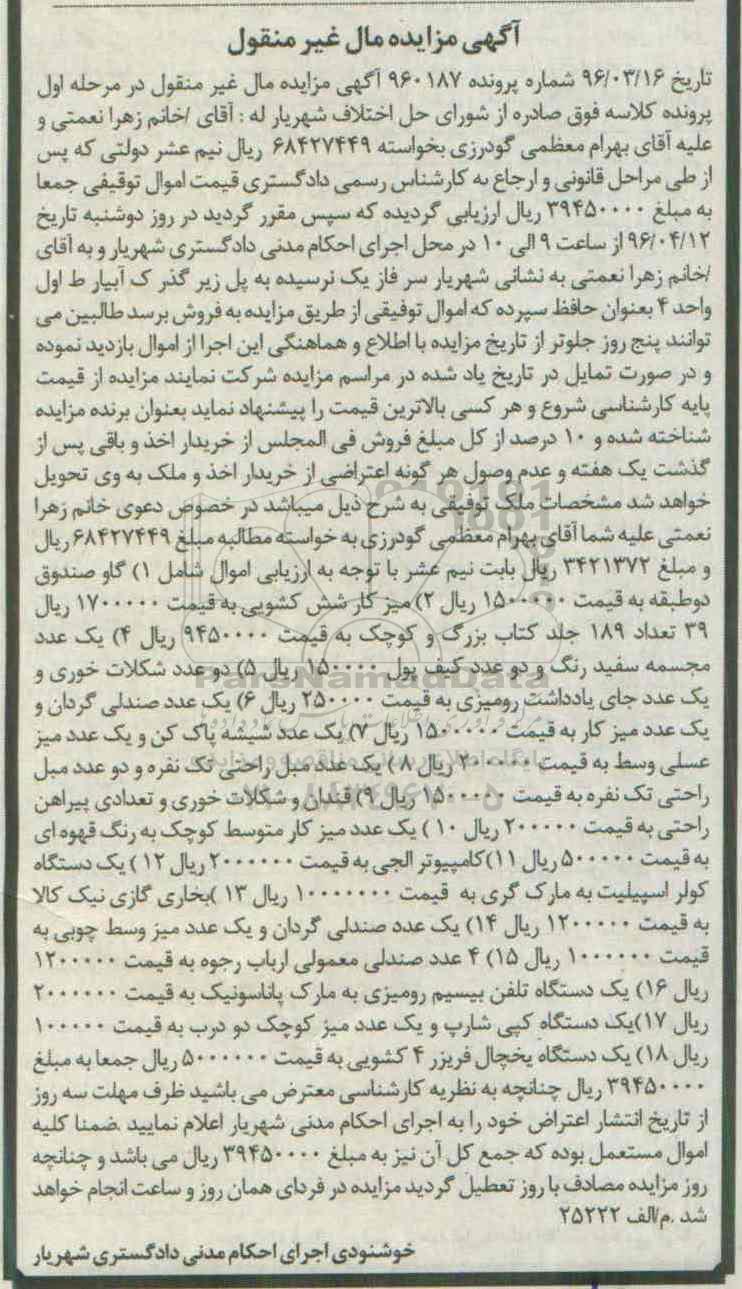 آگهی مزایده مال غیر منقول
تاریخ ۹۶/۰۳/۱۶ شماره پرونده ۹۶۰۱۸۷ آگهی مزایده مال غیر منقول در مرحله اول
پرونده کلاسه فوق صادره از شورای حل اختلاف شهریار له : آقای /خانم زهرا نعمتی و
علیه آقای بهرام معظمی گودرزی بخواسته ۶۸۴۲۷۴۴۹ ریال نیم عشر دولتی که پس
از طی مراحل قانونی و ارجاع به کارشناس رسمی دادگستری قیمت اموال توقیفی جمعا
به مبلغ ۳۹۴۵۰۰۰۰ ریال ارزیابی گردیده که سپس مقرر گردید در روز دوشنبه تاریخ
۹۶/۰۴/۱۲ از ساعت ۹ الی ۱۰ در محل اجرای احکام مدنی دادگستری شهریار و به آقای
/خانم زهرا نعمتی به نشانی شهریار سر فاز یک نرسیده به پل زیر گذر ک آبیار ط اول
واحد ۴ بعنوان حافظ سپرده که اموال توقیفی از طریق مزایده به فروش برسد طالبین می
توانند پنج روز جلوتر از تاریخ مزایده با اطلاع و هماهنگی این اجرا از اموال بازدید نموده
و در صورت تمایل در تاریخ یاد شده در مراسم مزایده شرکت نمایند مزایده از قیمت
پایه کارشناسی شروع و هر کسی بالاترین قیمت را پیشنهاد نماید بعنوان برنده مزایده
شناخته شده و ۱۰ درصد از کل مبلغ فروش فی المجلس از خریدار اخذ و باقی پس از
گذشت یک هفته و عدم وصول هر گونه اعتراضی از خریدار اخذ و ملک به وی تحویل
خواهد شد مشخصات ملک توقیفی به شرح ذیل میباشد در خصوص دعوی خانم زهرا
نعمتی علیه شما آقای بهرام معظمی گودرزی به خواسته مطالبه مبلغ ۶۸۴۲۷۴۴۹ ریال
و مبلغ ۳۴۲۱۳۷۲ ریال بابت نیم عشر با توجه به ارزیابی اموال شامل ۱) گاو صندوق
دوطبقه به قیمت ۱۵۰۰۰۰۰ ریال ۲) میز کار شش کشویی به قیمت ۱۷۰۰۰۰۰ ریال
۳۹ تعداد ۱۸۹ جلد کتاب بزرگ و کوچک به قیمت ۹۴۵۰۰۰۰ ریال ۴) یک عدد
مجسمه سفید رنگ و دو عدد کیف پول ۱۵۰۰۰۰ ریال ۵) دو عدد شکلات خوری و
یک عدد جای یادداشت رومیزی به قیمت ۲۵۰۰۰۰ ریال ۶) یک عدد صندلی گردان و
یک عدد میز کار به قیمت ۱۵۰۰۰۰۰ ریال ۷) یک عدد شیشه پاک کن و یک عدد میز
عسلی وسط به قیمت ۲۰۰۰۰۰ ریال ۸) یک عدد مبل راحتی تک نفره و دو عدد مبل
راحتی تک نفره به قیمت ۱۵۰۰۰۰۰ ریال ۹) قندان و شکلات خوری و تعدادی پیراهن
راحتی به قیمت ۲۰۰۰۰۰ ریال ۱۰ ) یک عدد میز کار متوسط کوچک به رنگ قهوه ای
به قیمت ۵۰۰۰۰۰ ریال ۱۱)کامپیوتر الجی به قیمت ۲۰۰۰۰۰۰ ریال ۱۲ ) یک دستگاه
کولر اسپیلیت به مارک گری به قیمت ۱۰۰۰۰۰۰۰ ریال ۱۳ )بخاری گازی نیک کالا
به قیمت ۱۲۰۰۰۰۰ ریال ۱۴) یک عدد صندلی گردان و یک عدد میز وسط چوبی به
قیمت ۱۰۰۰۰۰۰ ریال ۱۵) ۴ عدد صندلی معمولی ارباب رجوه به قیمت ۱۲۰۰۰۰۰
ریال ۱۶) یک دستگاه تلفن بیسیم رومیزی به مارک پاناسونیک به قیمت ۲۰۰۰۰۰۰
ریال ۱۷)یک دستگاه کپی شارپ و یک عدد میز کوچک دو درب به قیمت ۱۰۰۰۰۰
ریال ۱۸) یک دستگاه یخچال فریزر ۴ کشویی به قیمت ۵۰۰۰۰۰۰ ریال جمعا به مبلغ
۳۹۴۵۰۰۰۰ ریال چنانچه به نظریه کارشناسی معترض می باشید ظرف مهلت سه روز
از تاریخ انتشار اعتراض خود را به اجرای احکام مدنی شهریار اعلام نمایید .ضمنا کلیه
اموال مستعمل بوده که جمع کل آن نیز به مبلغ ۳۹۴۵۰۰۰۰ ریال می باشد و چنانچه
روز مزایده مصادف با روز تعطیل گردید مزایده در فردای همان روز و ساعت انجام خواهد
شد .م/الف ۲۵۲۲۲
خوشنودی اجرای احکام مدنی دادگستری شهریار
ParsNamadData